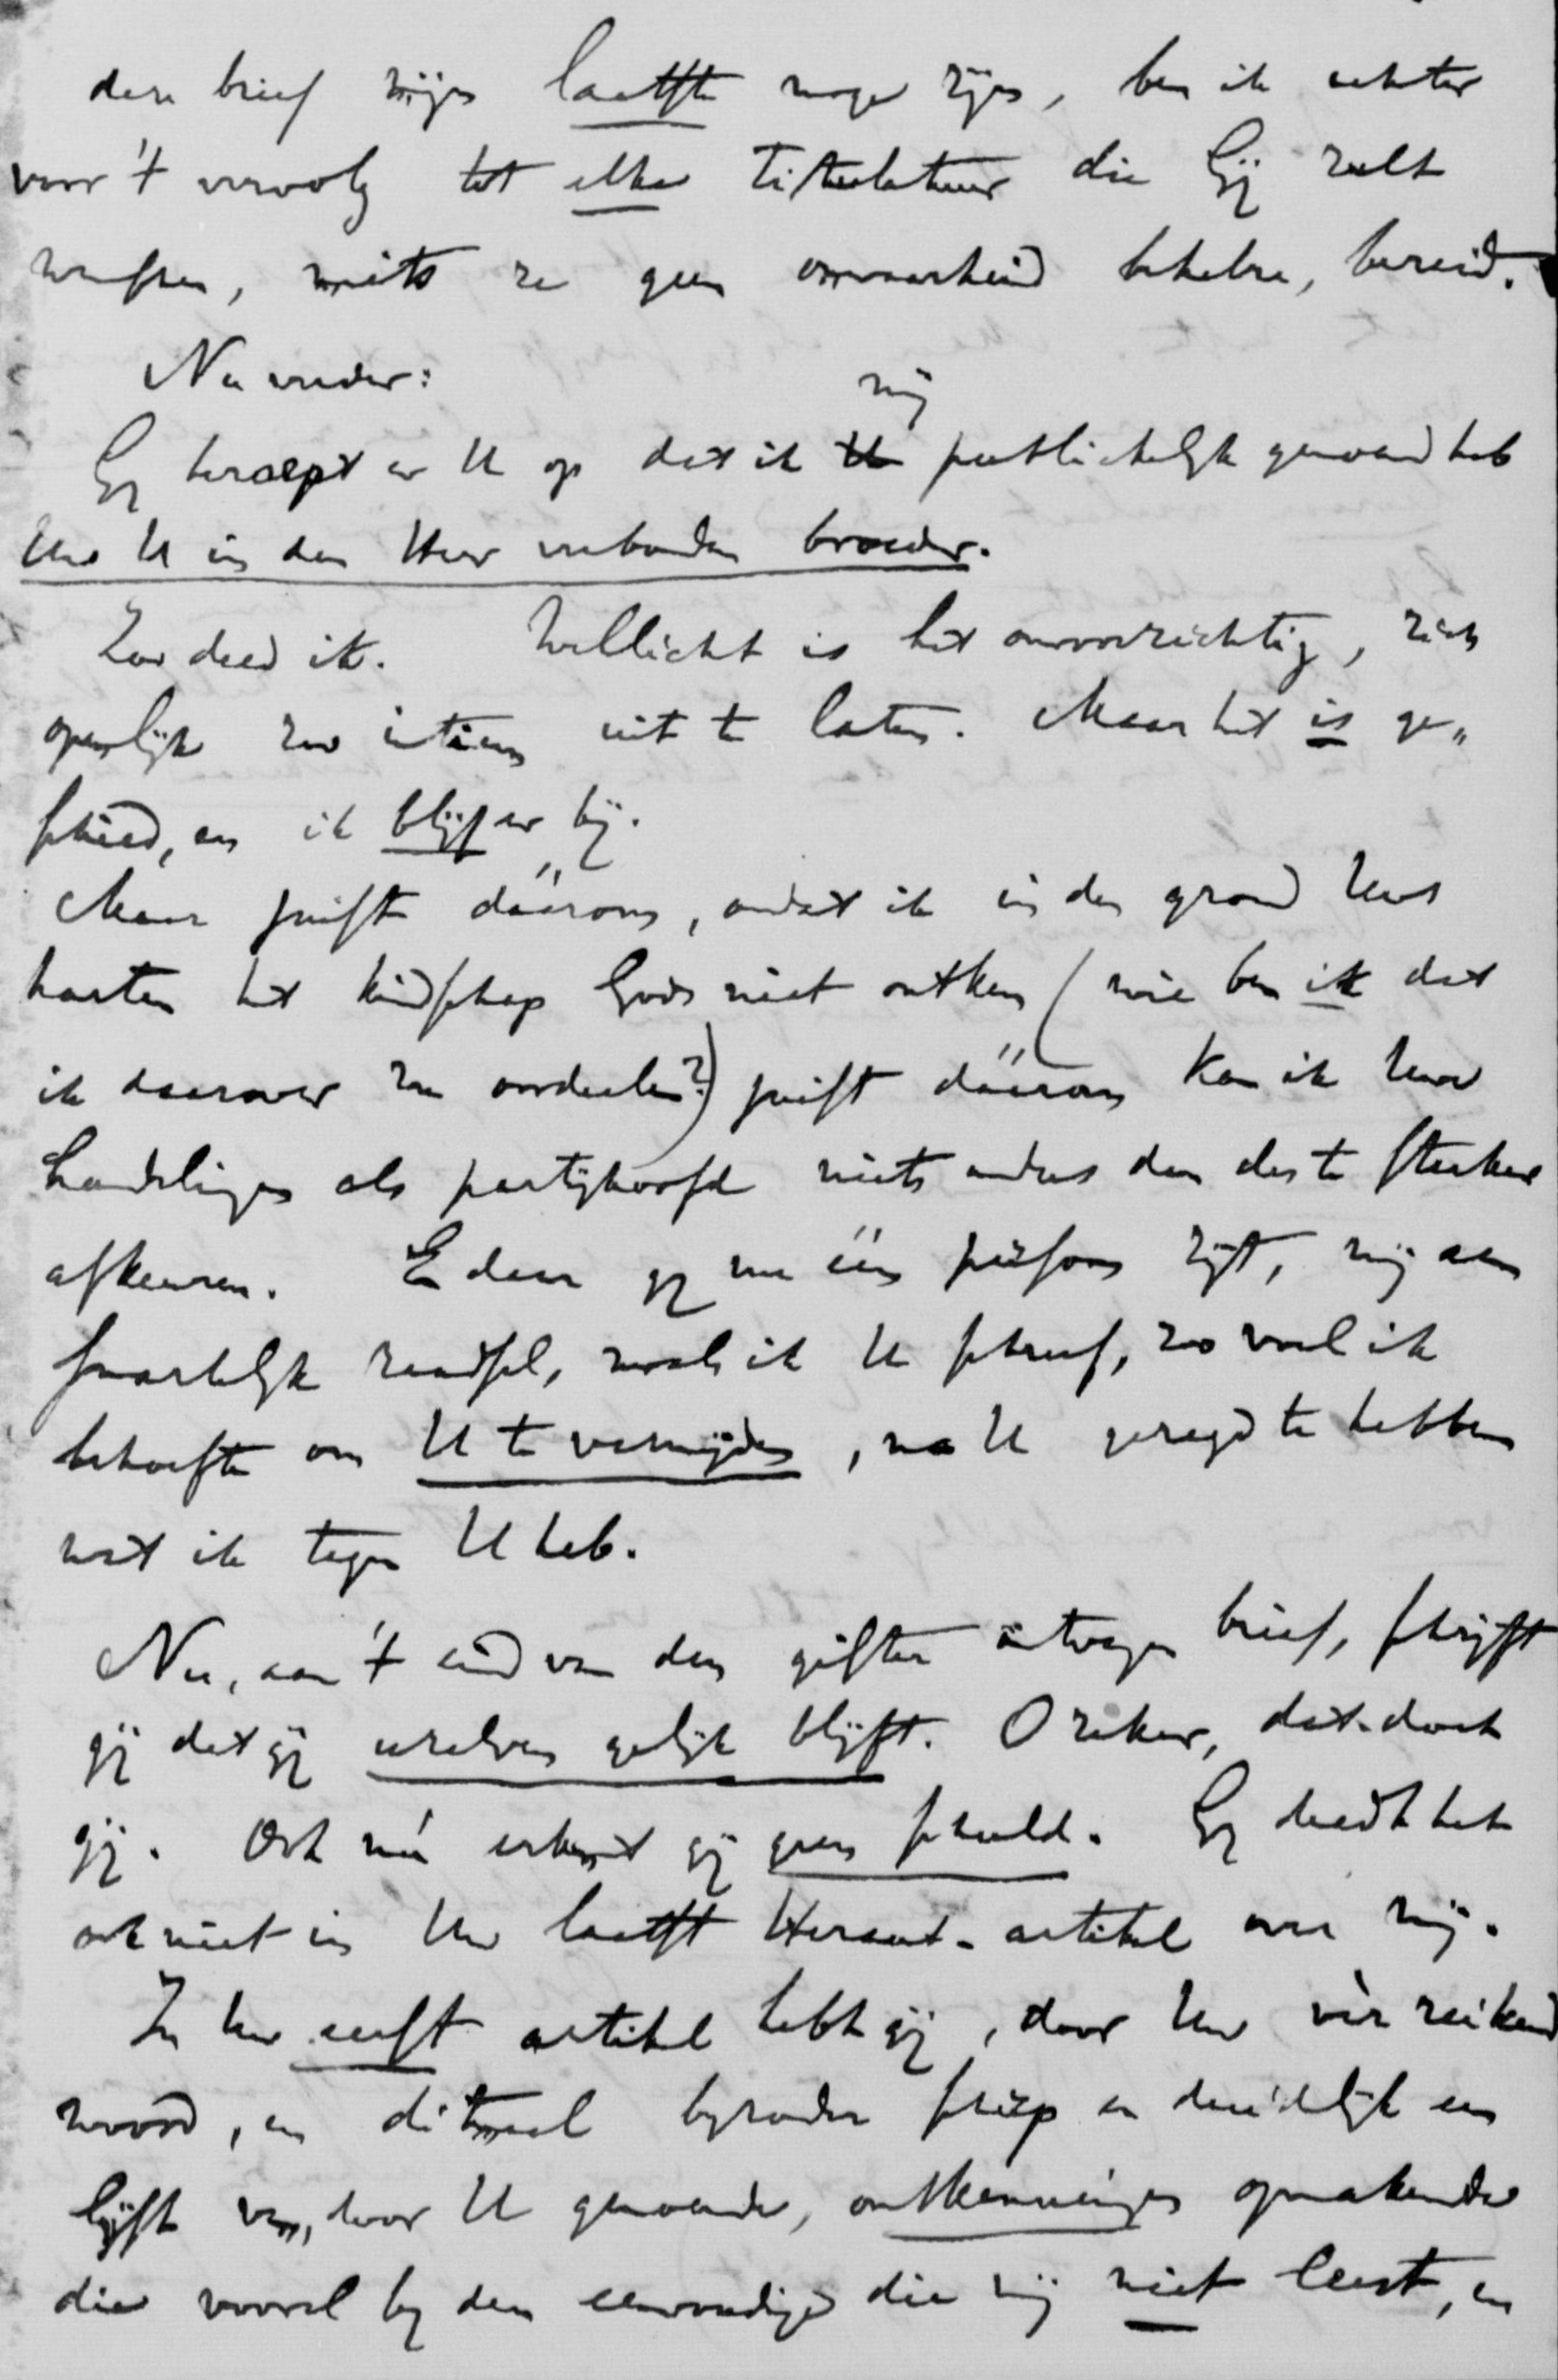 deze brief mijn laatste moge zijn, ben ik echter
voor 't vervolg tot elke titulatuur die Gij zult
wenschen, mits ze geen onwaarheid behelze, bereid.
Nu verder:
Gij beroept er U op dat ik mij publiekelijk genoemd heb
Uw U in den Heer verbonden broeder.
Zoo deed ik. Wellicht is het onvoorzichtig, zich
openlijk zoo intiem uit te laten. Maar het is ge„
schied, en ik blijf er bij.
Maar juist dáárom, omdat ik in den grond Uws
harten het kindschap Gods niet ontken (wie ben ik dat
ik daarover zou oordeelen?) juist dáárom kan ik Uwe
handelingen als partijhoofd niets anders dan des te sterker
afkeuren. En daar gij nu één persoon zijt, mij een
smartelijk raadsel, zooals ik U schreef, zoo voel ik
behoefte om U te vermijden, na U gezegd te hebben
wat ik tegen U heb.
Nu, aan 't eind van den gister ontvangen brief, schrijft
gij dat gij uzelven gelijk blijft. O zeker, dat doet
gij. Ook nú erkent gij geen schuld. Gij deedt het
ook niet in Uw laatste Heraut-artikel over mij.
In Uw eerste artikel hebt gij, door Uw vèr reikend
woord, en ditmaal byzonder scherp en duidelijk een
lijst van, door U genoemde, ontkenningen opmakende
die vooral bij den eenvoudige die mij niet leest, en